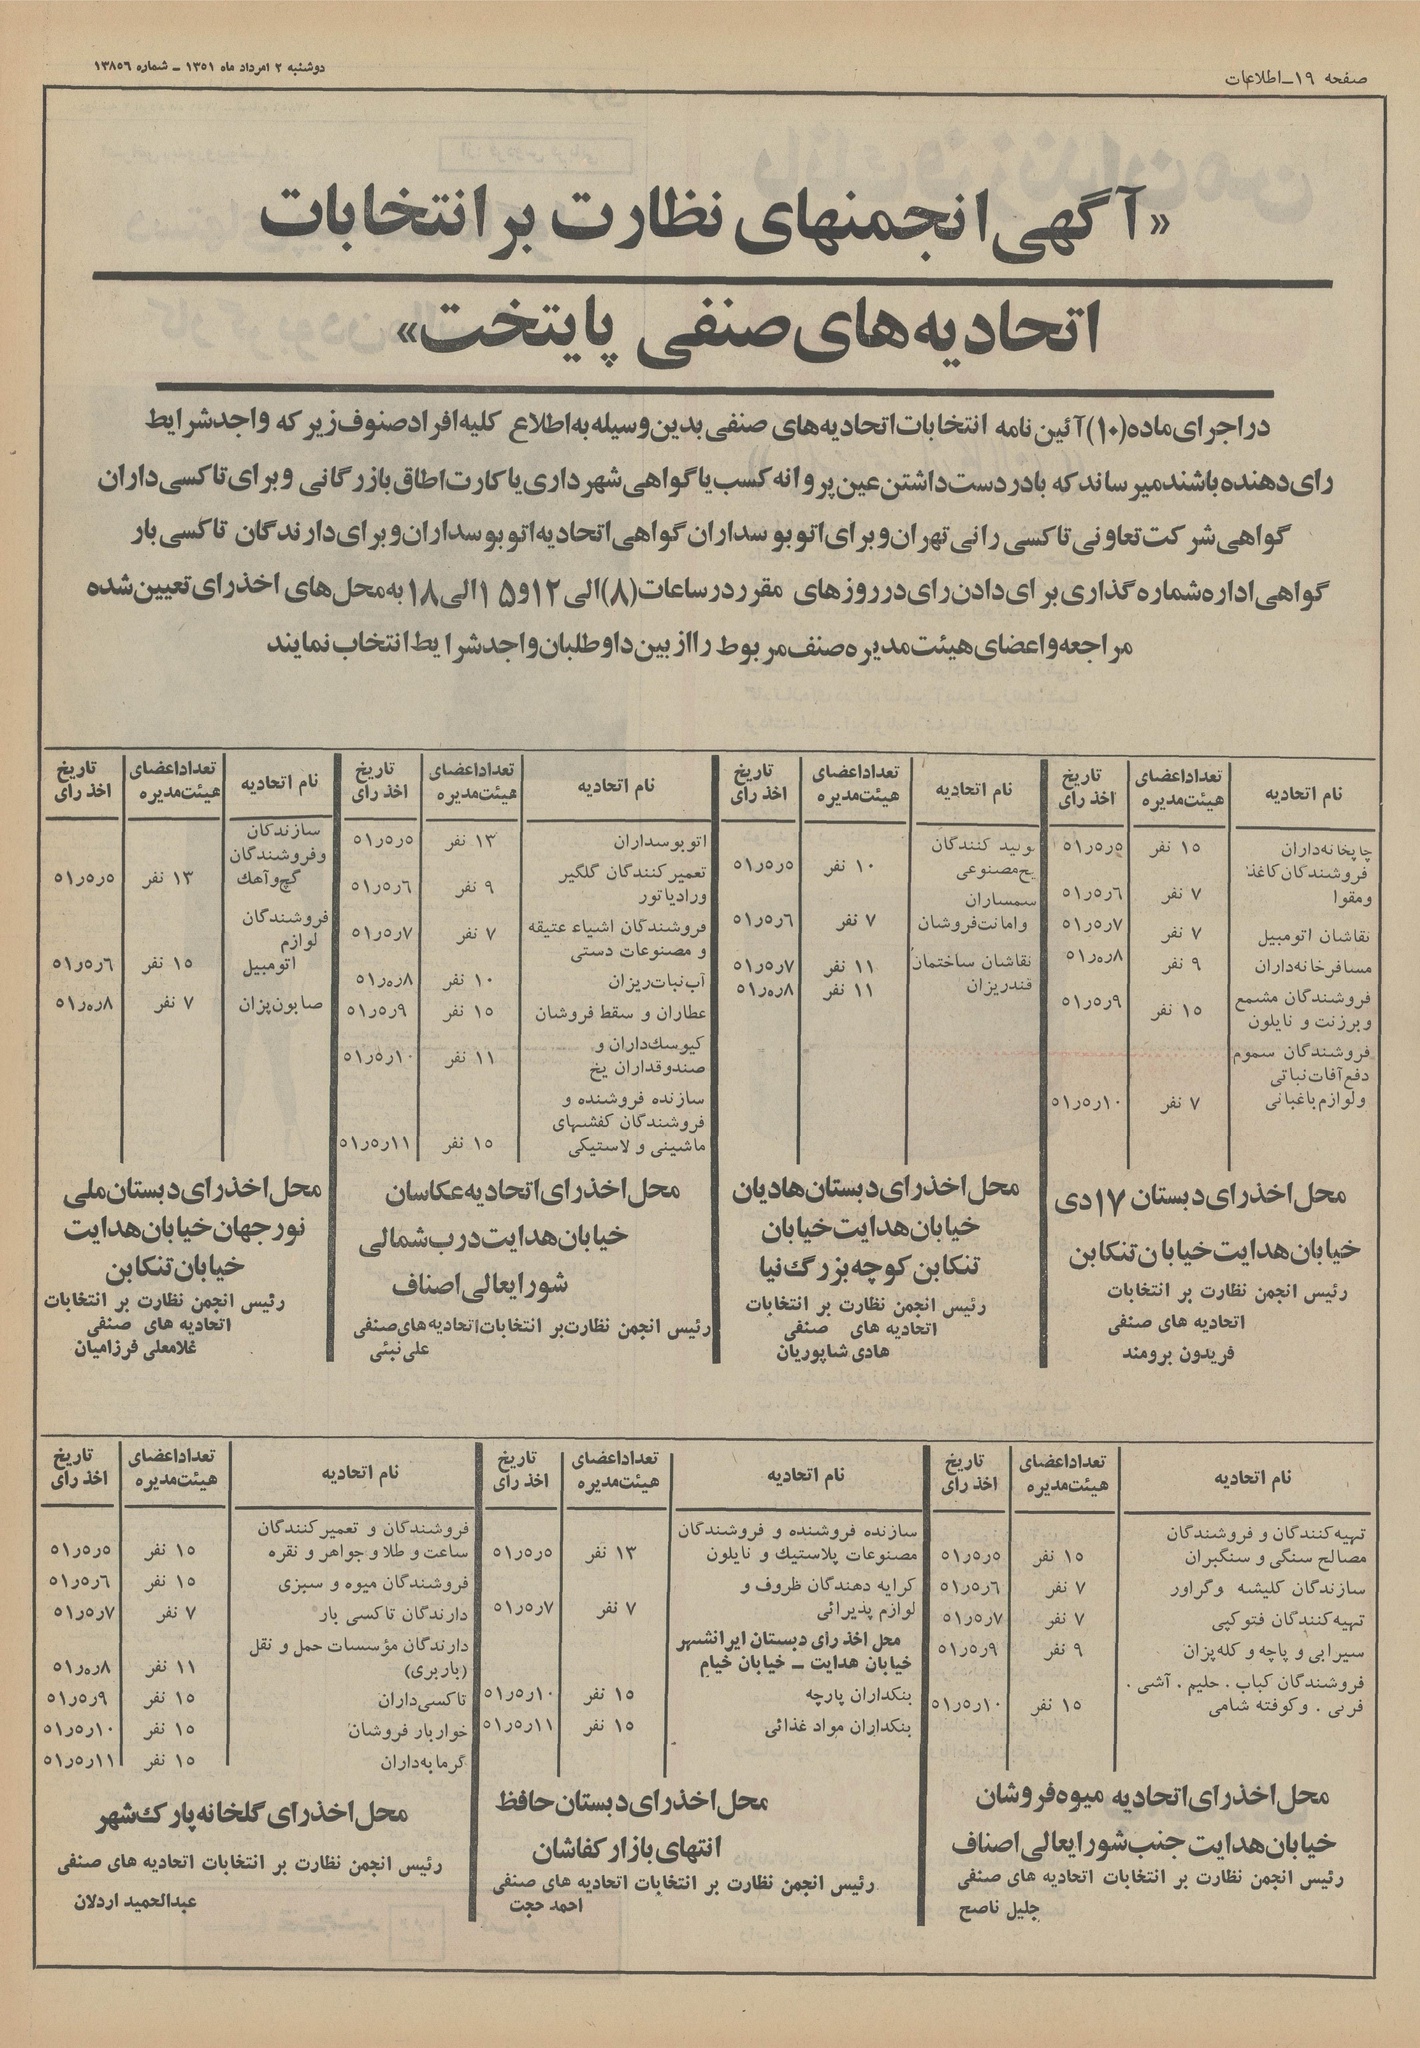 صفحه ۱۹ـ اطلاعات
دوشنبه ۲ امرداد ماه ۱۳۵۱ ـ شماره ۱۳۸۵۶
«آگهی انجمنهای نظارت بر انتخابات
اتحادیه های صنفی پایتخت»
در اجرای ماده (۱۰) آئین نامه انتخابات اتحادیه های صنفی بدین وسیله به اطلاع کلیه افراد صنوف زیر که واجد شرایط
رای دهنده باشند میرساند که با در دست داشتن عین پروانه کسب یا گواهی شهرداری یا کارت اطاق بازرگانی و برای تاکسی داران
گواهی شرکت تعاونی تاکسی رانی تهران و برای اتوبوسداران گواهی اتحادیه اتوبوسداران و برای دارندگان تاکسی بار
گواهی اداره شماره گذاری برای دادن رای در روزهای مقرر در ساعات (۸) الی ۱۲ و ۱۵ الی ۱۸ به محل های اخذ رای تعیین شده
مراجعه و اعضای هیئت مدیره صنف مربوط را از بین داوطلبان واجد شرایط انتخاب نمایند
نام اتحادیه تعداد اعضای هیئت مدیره تاریخ اخذ رای
چاپخانه داران ۱۵ نفر ۵ر۵ر۵۱
فروشندگان کاغذ
و مقوا ۷ نفر ۶ر۵ر۵۱
نقاشان اتومبیل ۷ نفر ۷ر۵ر۵۱
مسافرخانه داران ۹ نفر ۸ر۵ر۵۱
فروشندگان مشمع
و برزنت و نایلون ۱۵ نفر ۹ر۵ر۵۱
فروشندگان سموم
دفع آفات نباتی
و لوازم باغبانی ۷ نفر ۱۰ر۵ر۵۱
محل اخذ رای دبستان ۱۷ دی
خیابان هدایت خیابان تنکابن
رئیس انجمن نظارت بر انتخابات
اتحادیه های صنفی
فریدون برومند
نام اتحادیه تعداد اعضای هیئت مدیره تاریخ اخذ رای
تولید کنندگان
یخ مصنوعی ۱۰ نفر ۵ر۵ر۵۱
سمساران
و امانت فروشان ۷ نفر ۶ر۵ر۵۱
نقاشان ساختمان ۱۱ نفر ۷ر۵ر۵۱
قندریزان ۱۱ نفر ۸ر۵ر۵۱
محل اخذ رای دبستان هادیان
خیابان هدایت خیابان
تنکابن کوچه بزرگ نیا
رئیس انجمن نظارت بر انتخابات
اتحادیه های صنفی
هادی شاپوریان
نام اتحادیه تعداد اعضای هیئت مدیره تاریخ اخذ رای
اتوبوسداران ۱۳ نفر ۵ر۵ر۵۱
تعمیر کنندگان گلگیر
و رادیاتور ۹ نفر ۶ر۵ر۵۱
فروشندگان اشیاء عتیقه
و مصنوعات دستی ۷ نفر ۷ر۵ر۵۱
آب نبات ریزان ۱۰ نفر ۸ر۵ر۵۱
عطاران و سقط فروشان ۱۵ نفر ۹ر۵ر۵۱
کیوسک داران و
صندوقداران یخ ۱۱ نفر ۱۰ر۵ر۵۱
سازنده فروشنده و
فروشندگان کفشهای
ماشینی و لاستیکی ۱۵ نفر ۱۱ر۵ر۵۱
محل اخذ رای اتحادیه عکاسان
خیابان هدایت درب شمالی
شورایعالی اصناف
رئیس انجمن نظارت بر انتخابات اتحادیه های صنفی
علی نبئی
نام اتحادیه تعداد اعضای هیئت مدیره تاریخ اخذ رای
سازندگان
و فروشندگان
گچ و آهک ۱۳ نفر ۵ر۵ر۵۱
فروشندگان
لوازم
اتومبیل ۱۵ نفر ۶ر۵ر۵۱
صابون پزان ۷ نفر ۸ر۵ر۵۱
محل اخذ رای دبستان ملی
نورجهان خیابان هدایت
خیابان تنکابن
رئیس انجمن نظارت بر انتخابات
اتحادیه های صنفی
غلامعلی فرزامیان
نام اتحادیه تعداد اعضای هیئت مدیره تاریخ اخذ رای
تهیه کنندگان و فروشندگان
مصالح سنگی و سنگبران ۱۵ نفر ۵ر۵ر۵۱
سازندگان کلیشه و گراور ۷ نفر ۶ر۵ر۵۱
تهیه کنندگان فتوکپی ۷ نفر ۷ر۵ر۵۱
سیرابی و پاچه و کله پزان ۹ نفر ۹ر۵ر۵۱
فروشندگان کباب . حلیم . آشی .
فرنی . و کوفته شامی ۱۵ نفر ۱۰ر۵ر۵۱
محل اخذ رای اتحادیه میوه فروشان
خیابان هدایت جنب شورایعالی اصناف
رئیس انجمن نظارت بر انتخابات اتحادیه های صنفی
جلیل ناصح
نام اتحادیه تعداد اعضای هیئت مدیره تاریخ اخذ رای
سازنده فروشنده و فروشندگان
مصنوعات پلاستیک و نایلون ۱۳ نفر ۵ر۵ر۵۱
کرایه دهندگان ظروف و
لوازم پذیرائی ۷ نفر ۷ر۵ر۵۱
محل اخذ رای دبستان ایرانشهر
خیابان هدایت ـ خیابان خیام
بنکداران پارچه ۱۵ نفر ۱۰ر۵ر۵۱
بنکداران مواد غذائی ۱۵ نفر ۱۱ر۵ر۵۱
محل اخذ رای دبستان حافظ
انتهای بازار کفاشان
رئیس انجمن نظارت بر انتخابات اتحادیه های صنفی
احمد حجت
نام اتحادیه تعداد اعضای هیئت مدیره تاریخ اخذ رای
فروشندگان و تعمیر کنندگان
ساعت و طلا و جواهر و نقره ۱۵ نفر ۵ر۵ر۵۱
فروشندگان میوه و سبزی ۱۵ نفر ۶ر۵ر۵۱
دارندگان تاکسی بار ۷ نفر ۷ر۵ر۵۱
دارندگان مؤسسات حمل و نقل
(باربری) ۱۱ نفر ۸ر۵ر۵۱
تاکسی داران ۱۵ نفر ۹ر۵ر۵۱
خواربار فروشان ۱۵ نفر ۱۰ر۵ر۵۱
گرمابه داران ۱۵ نفر ۱۱ر۵ر۵۱
محل اخذ رای گلخانه پارک شهر
رئیس انجمن نظارت بر انتخابات اتحادیه های صنفی
عبدالحمید اردلان